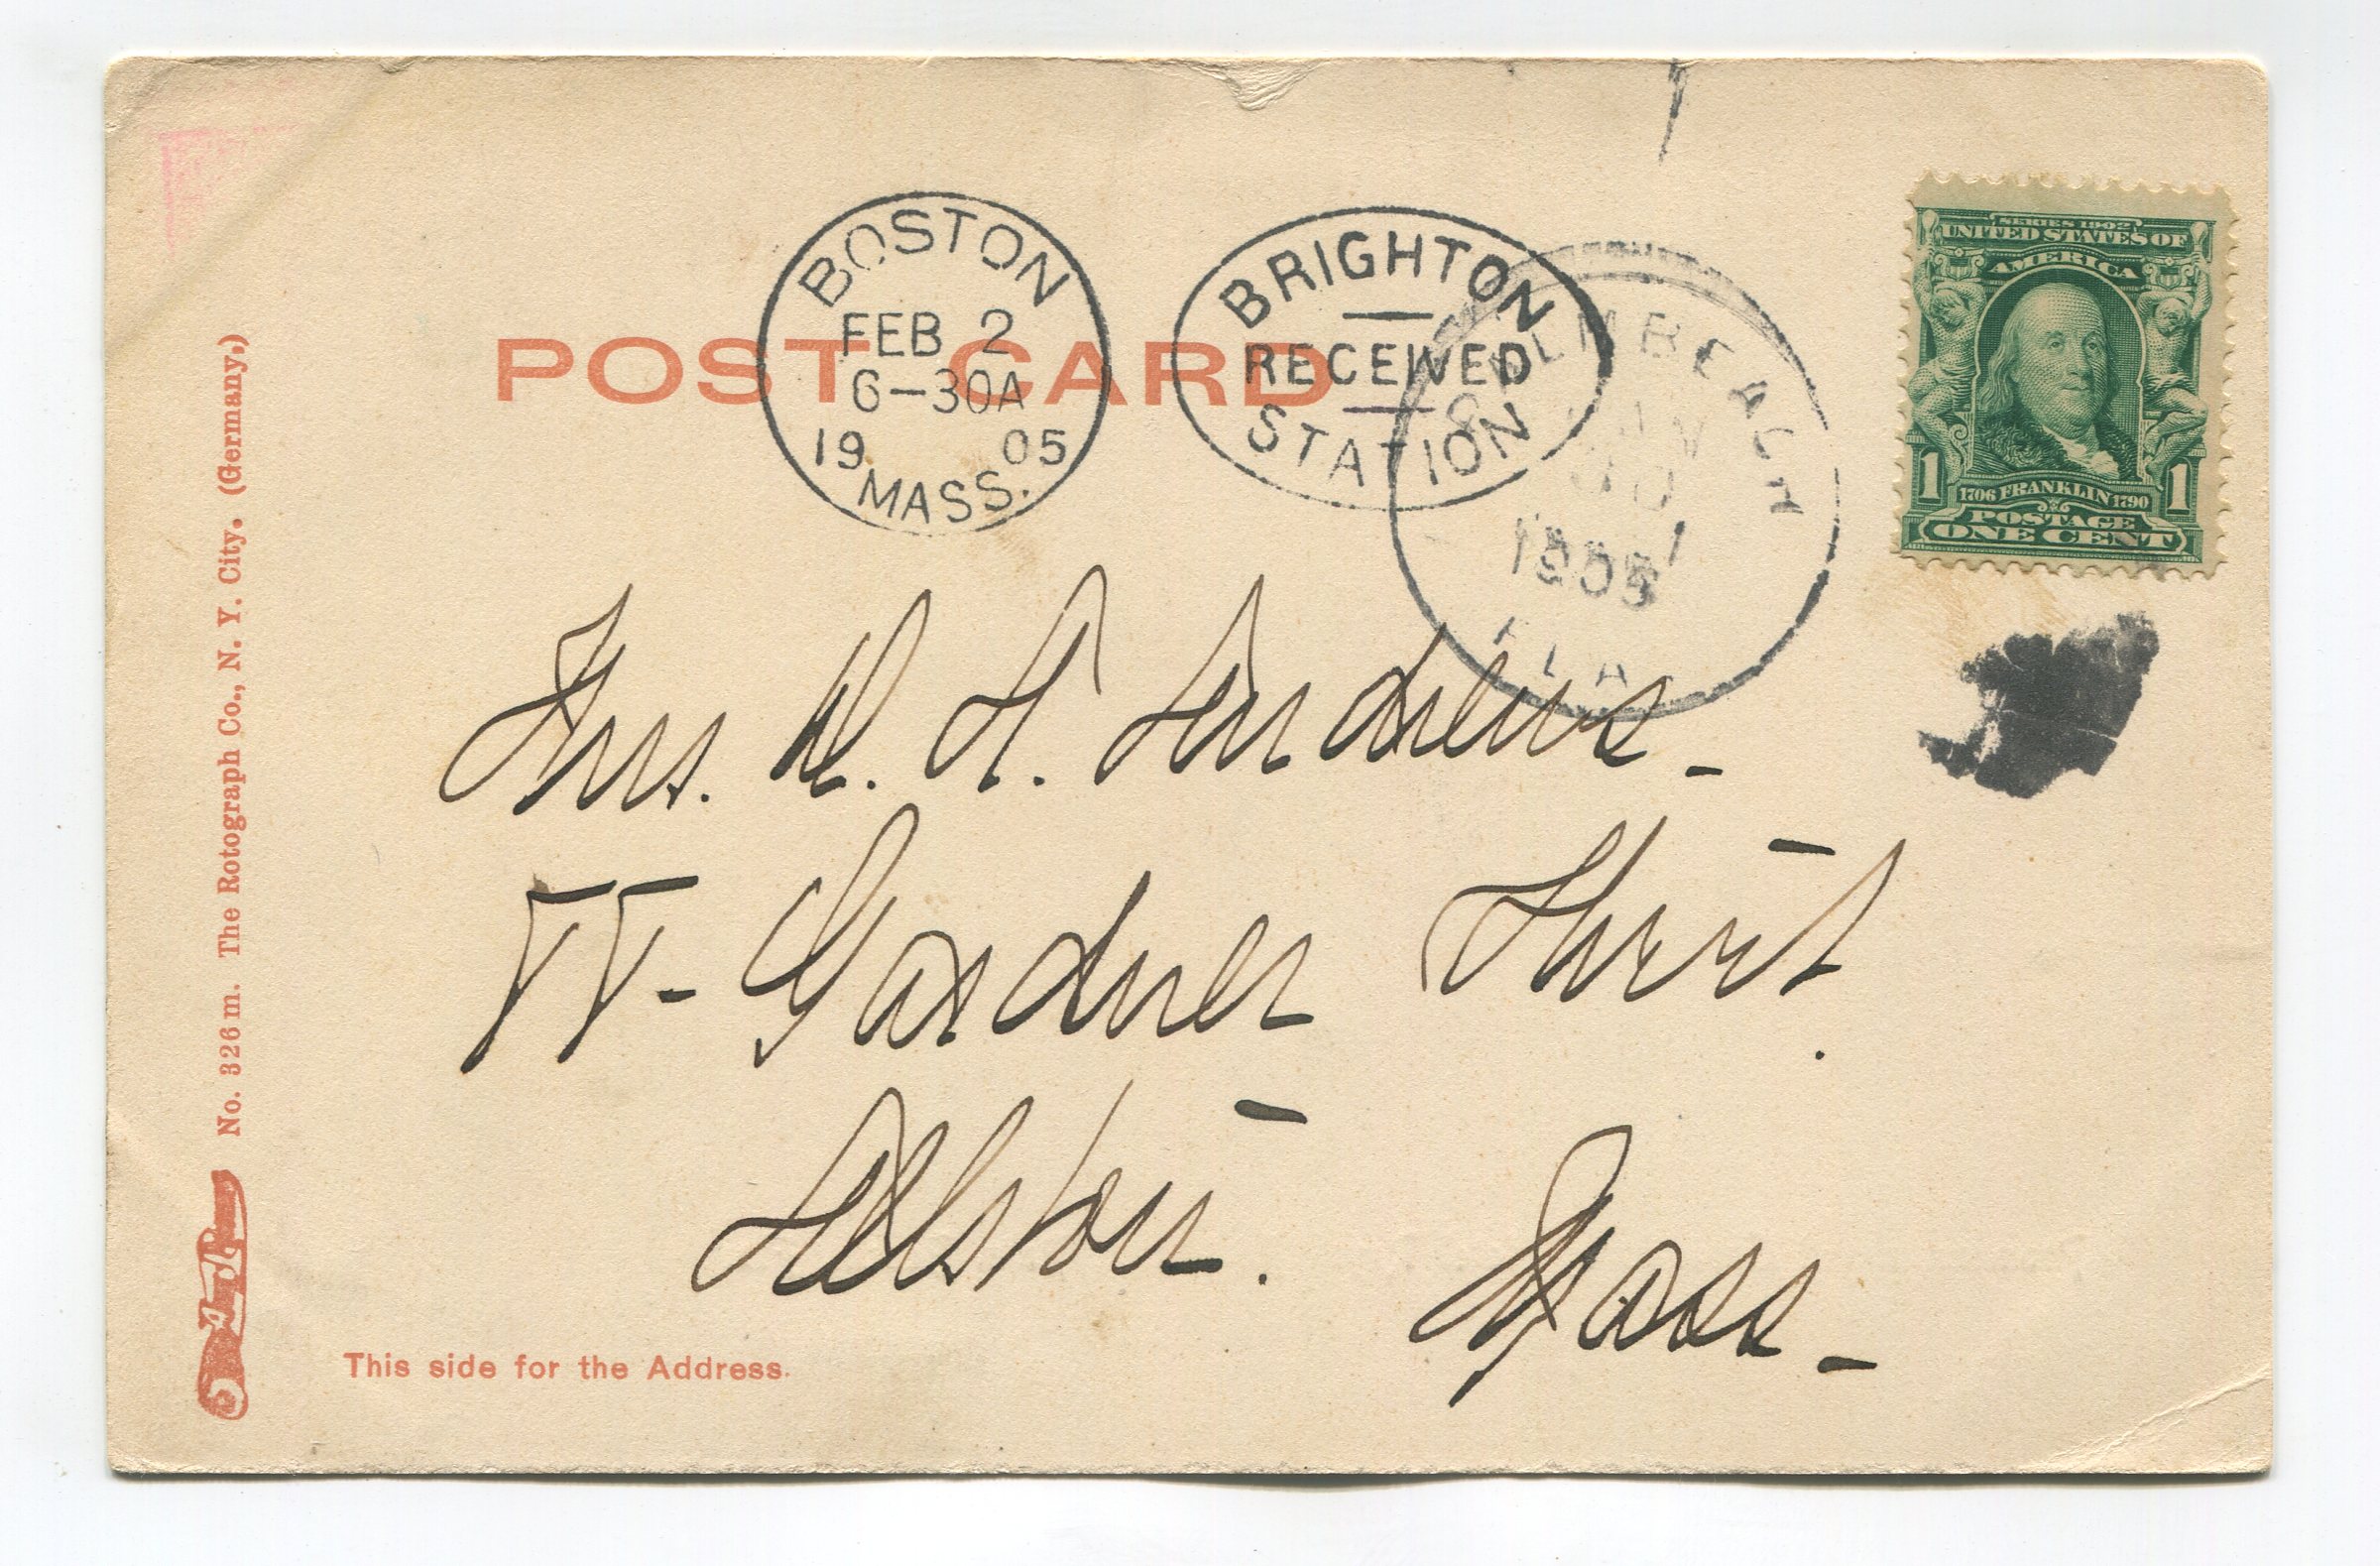 POST CARD
BOSTON
FEB 2
6-30A
19 05
MASS.
BRIGHTON
RECEIVED
STATION
PALM BEACH
JAN
30
1905
FLA
SERIES 1902
UNITED STATES OF
AMERICA
1 1706 FRANKLIN 1790 1
POSTAGE
ONE CENT
Mrs. W. H. Andrews -
77 - Gardner Street.
Allston. Mass -
No. 326 m. The Rotograph Co., N. Y. City. (Germany.)
This side for the Address.